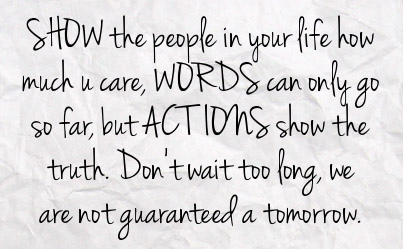 SHOW the people in your life how
much u care, WORDS can only go
so far, but ACTIONS show the
truth. Don't wait too long, we
are not guaranteed a tomorrow.